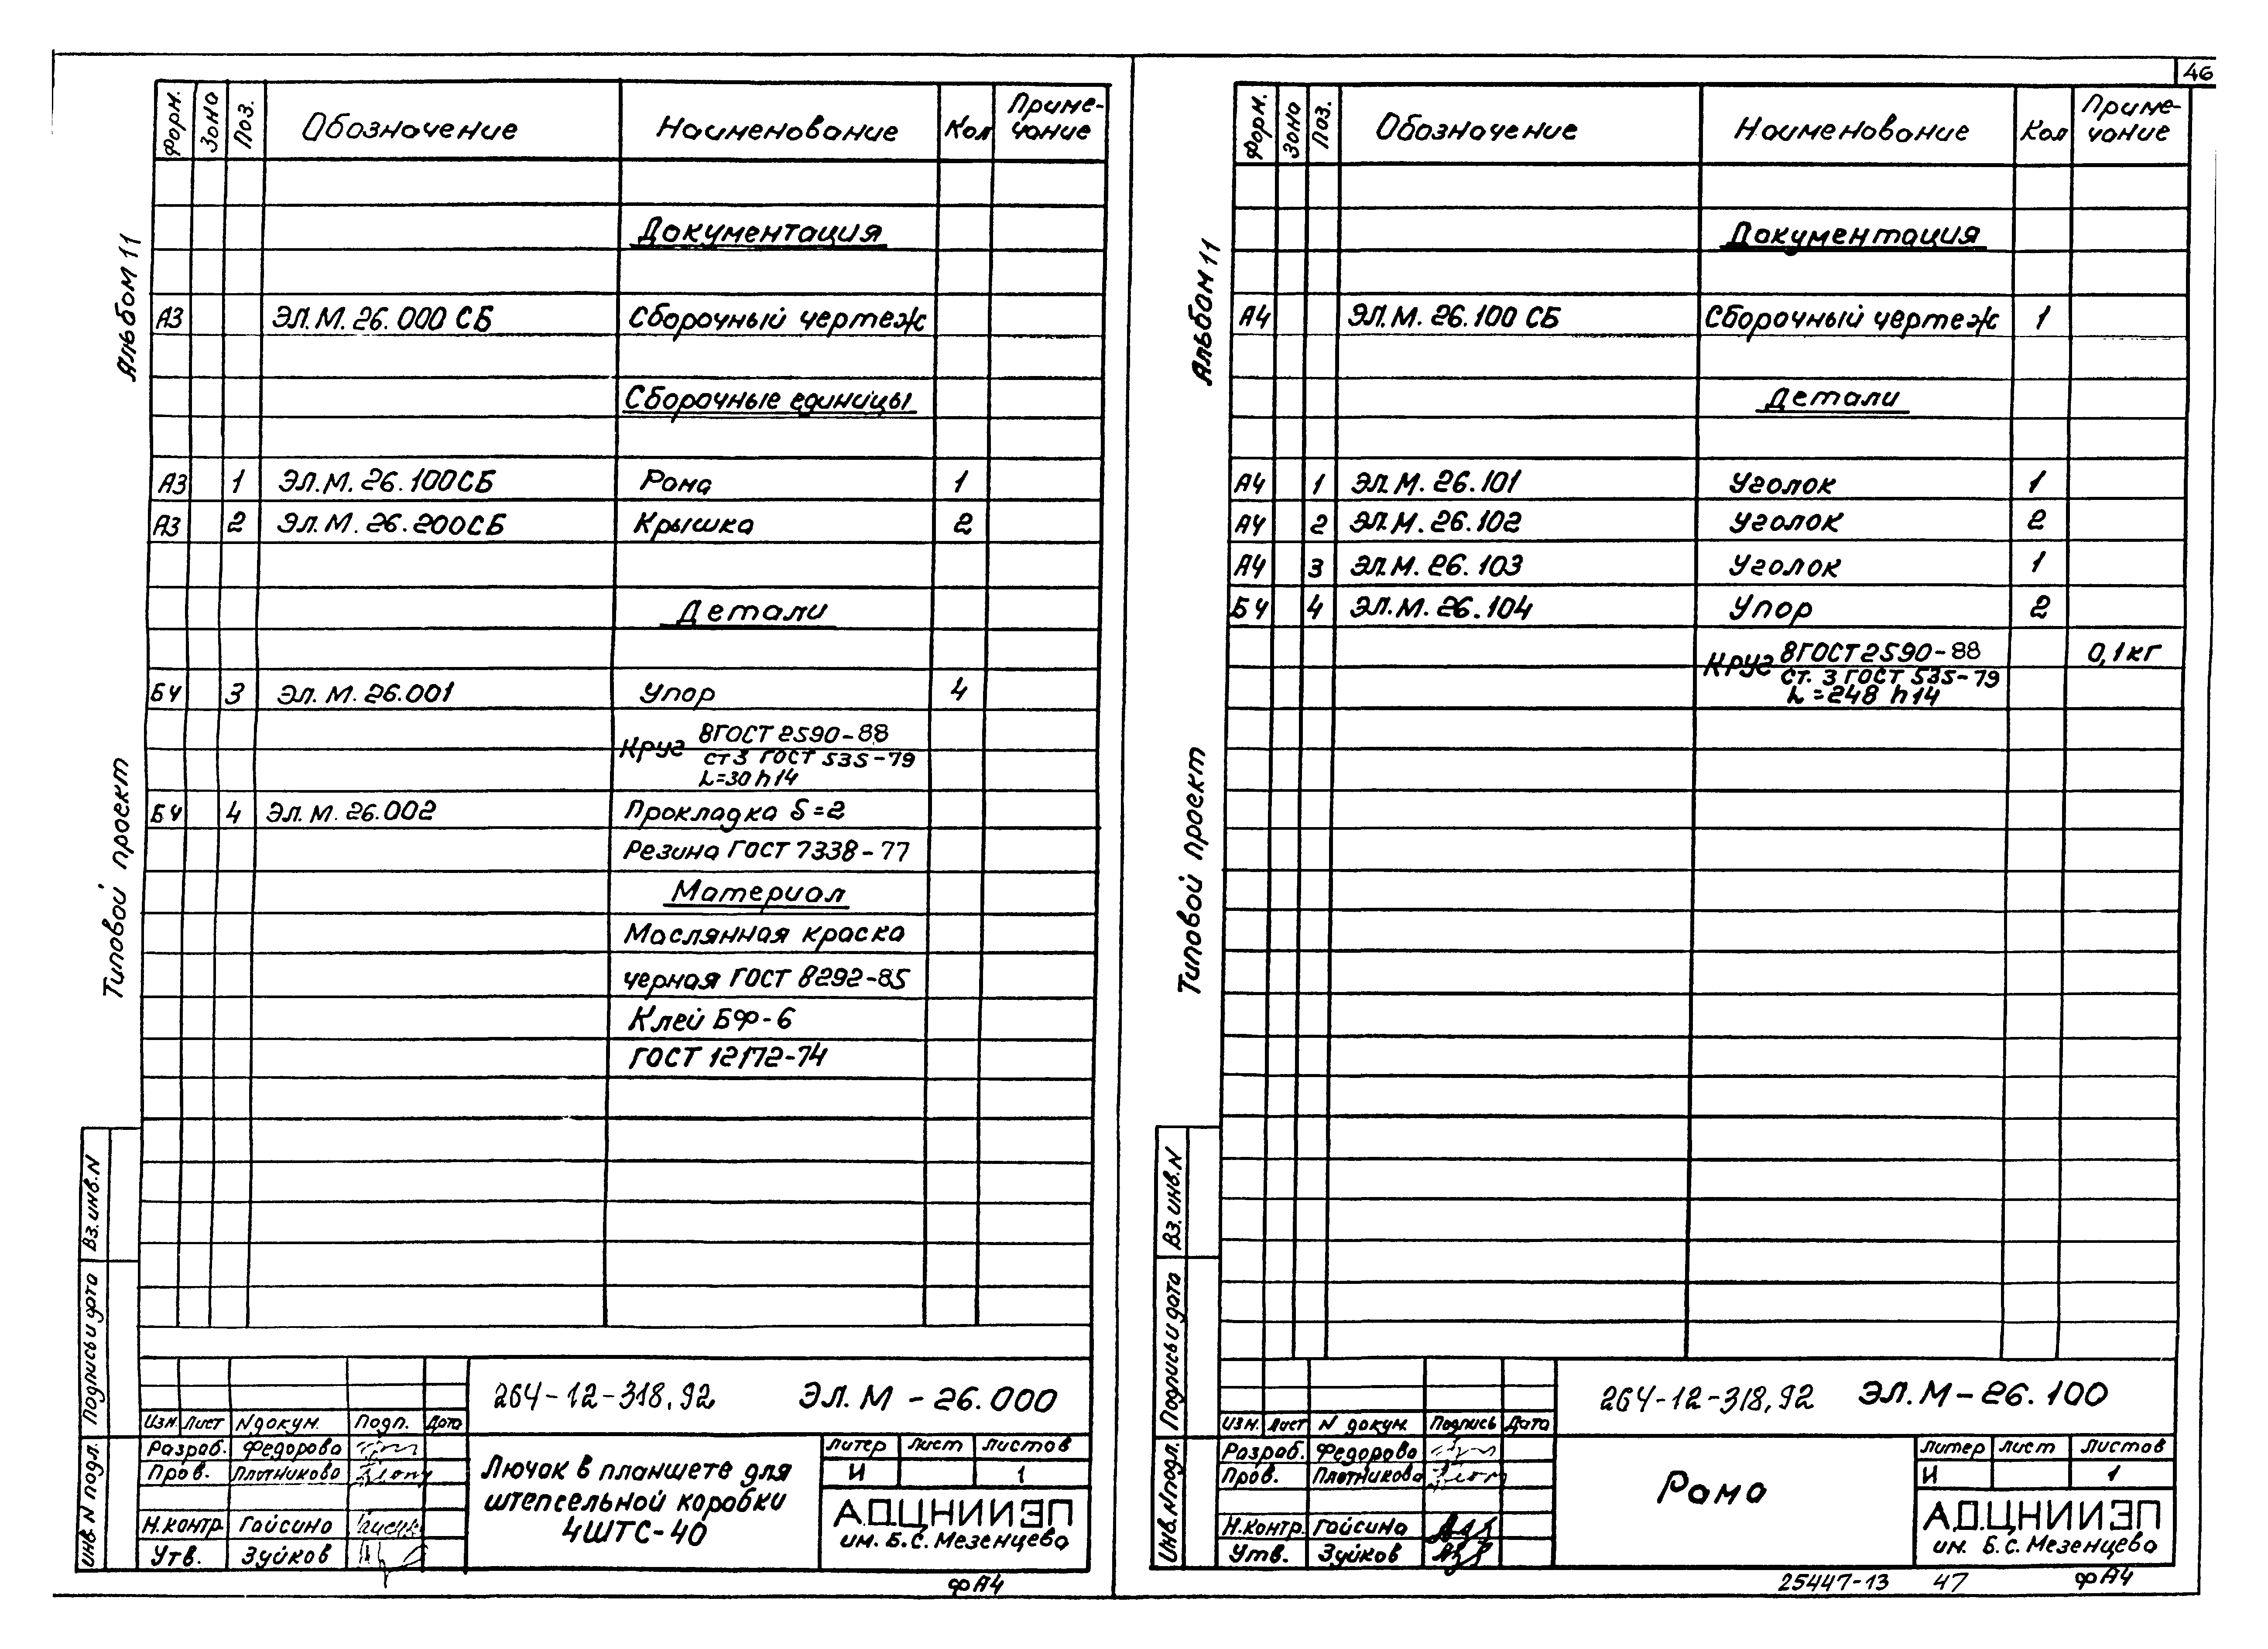 46
Альбом 11
Типовой проект
Форм. Зона Поз. Обозначение Наименование Кол Приме-
чание
Документация
А3 ЭЛ.М.26.000 СБ Сборочный чертеж
Сборочные единицы
А3 1 ЭЛ.М.26.100СБ Рама 1
А3 2 ЭЛ.М.26.200СБ Крышка 2
Детали
БЧ 3 ЭЛ.М.26.001 Упор 4
Круг 8ГОСТ 2590-88
ст3 ГОСТ 535-79
L=30 h14
БЧ 4 ЭЛ.М.26.002 Прокладка S=2
Резина ГОСТ 7338-77
Материал
Маслянная краска
черная ГОСТ 8292-85
Клей БФ-6
ГОСТ 12172-74
Вз. инв. N
Подпись и дата
Инв. N подл.
264-12-318.92 ЭЛ.М-26.000
Изм. Лист N докум. Подп. Дата
Разраб. Федорова
Пров. Плотникова
Н.контр Гайсина
Утв. Зуйков
Лючок в планшете для
штепсельной коробки
4ШТС-40
Литер Лист Листов
И 1
А.О.ЦНИИЭП
им. Б.С. Мезенцева
ФА4
Альбом 11
Типовой проект
Форм. Зона Поз. Обозначение Наименование Кол Приме-
чание
Документация
А4 ЭЛ.М.26.100 СБ Сборочный чертеж 1
Детали
А4 1 ЭЛ.М.26.101 Уголок 1
А4 2 ЭЛ.М.26.102 Уголок 2
А4 3 ЭЛ.М.26.103 Уголок 1
БЧ 4 ЭЛ.М.26.104 Упор 2
Круг 8ГОСТ2590-88 0,1кг
ст. 3 ГОСТ 535-79
L=248 h14
Вз. инв. N
Подпись и дата
Инв. N подл.
264-12-318.92 ЭЛ.М-26.100
Изм. Лист N докум. Подпись Дата
Разраб. Федорова
Пров. Плотникова
Н.контр. Гайсина
Утв. Зуйков
Рама
Литер Лист Листов
И 1
А.О.ЦНИИЭП
им. Б.С. Мезенцева
25447-13 47 ФА4